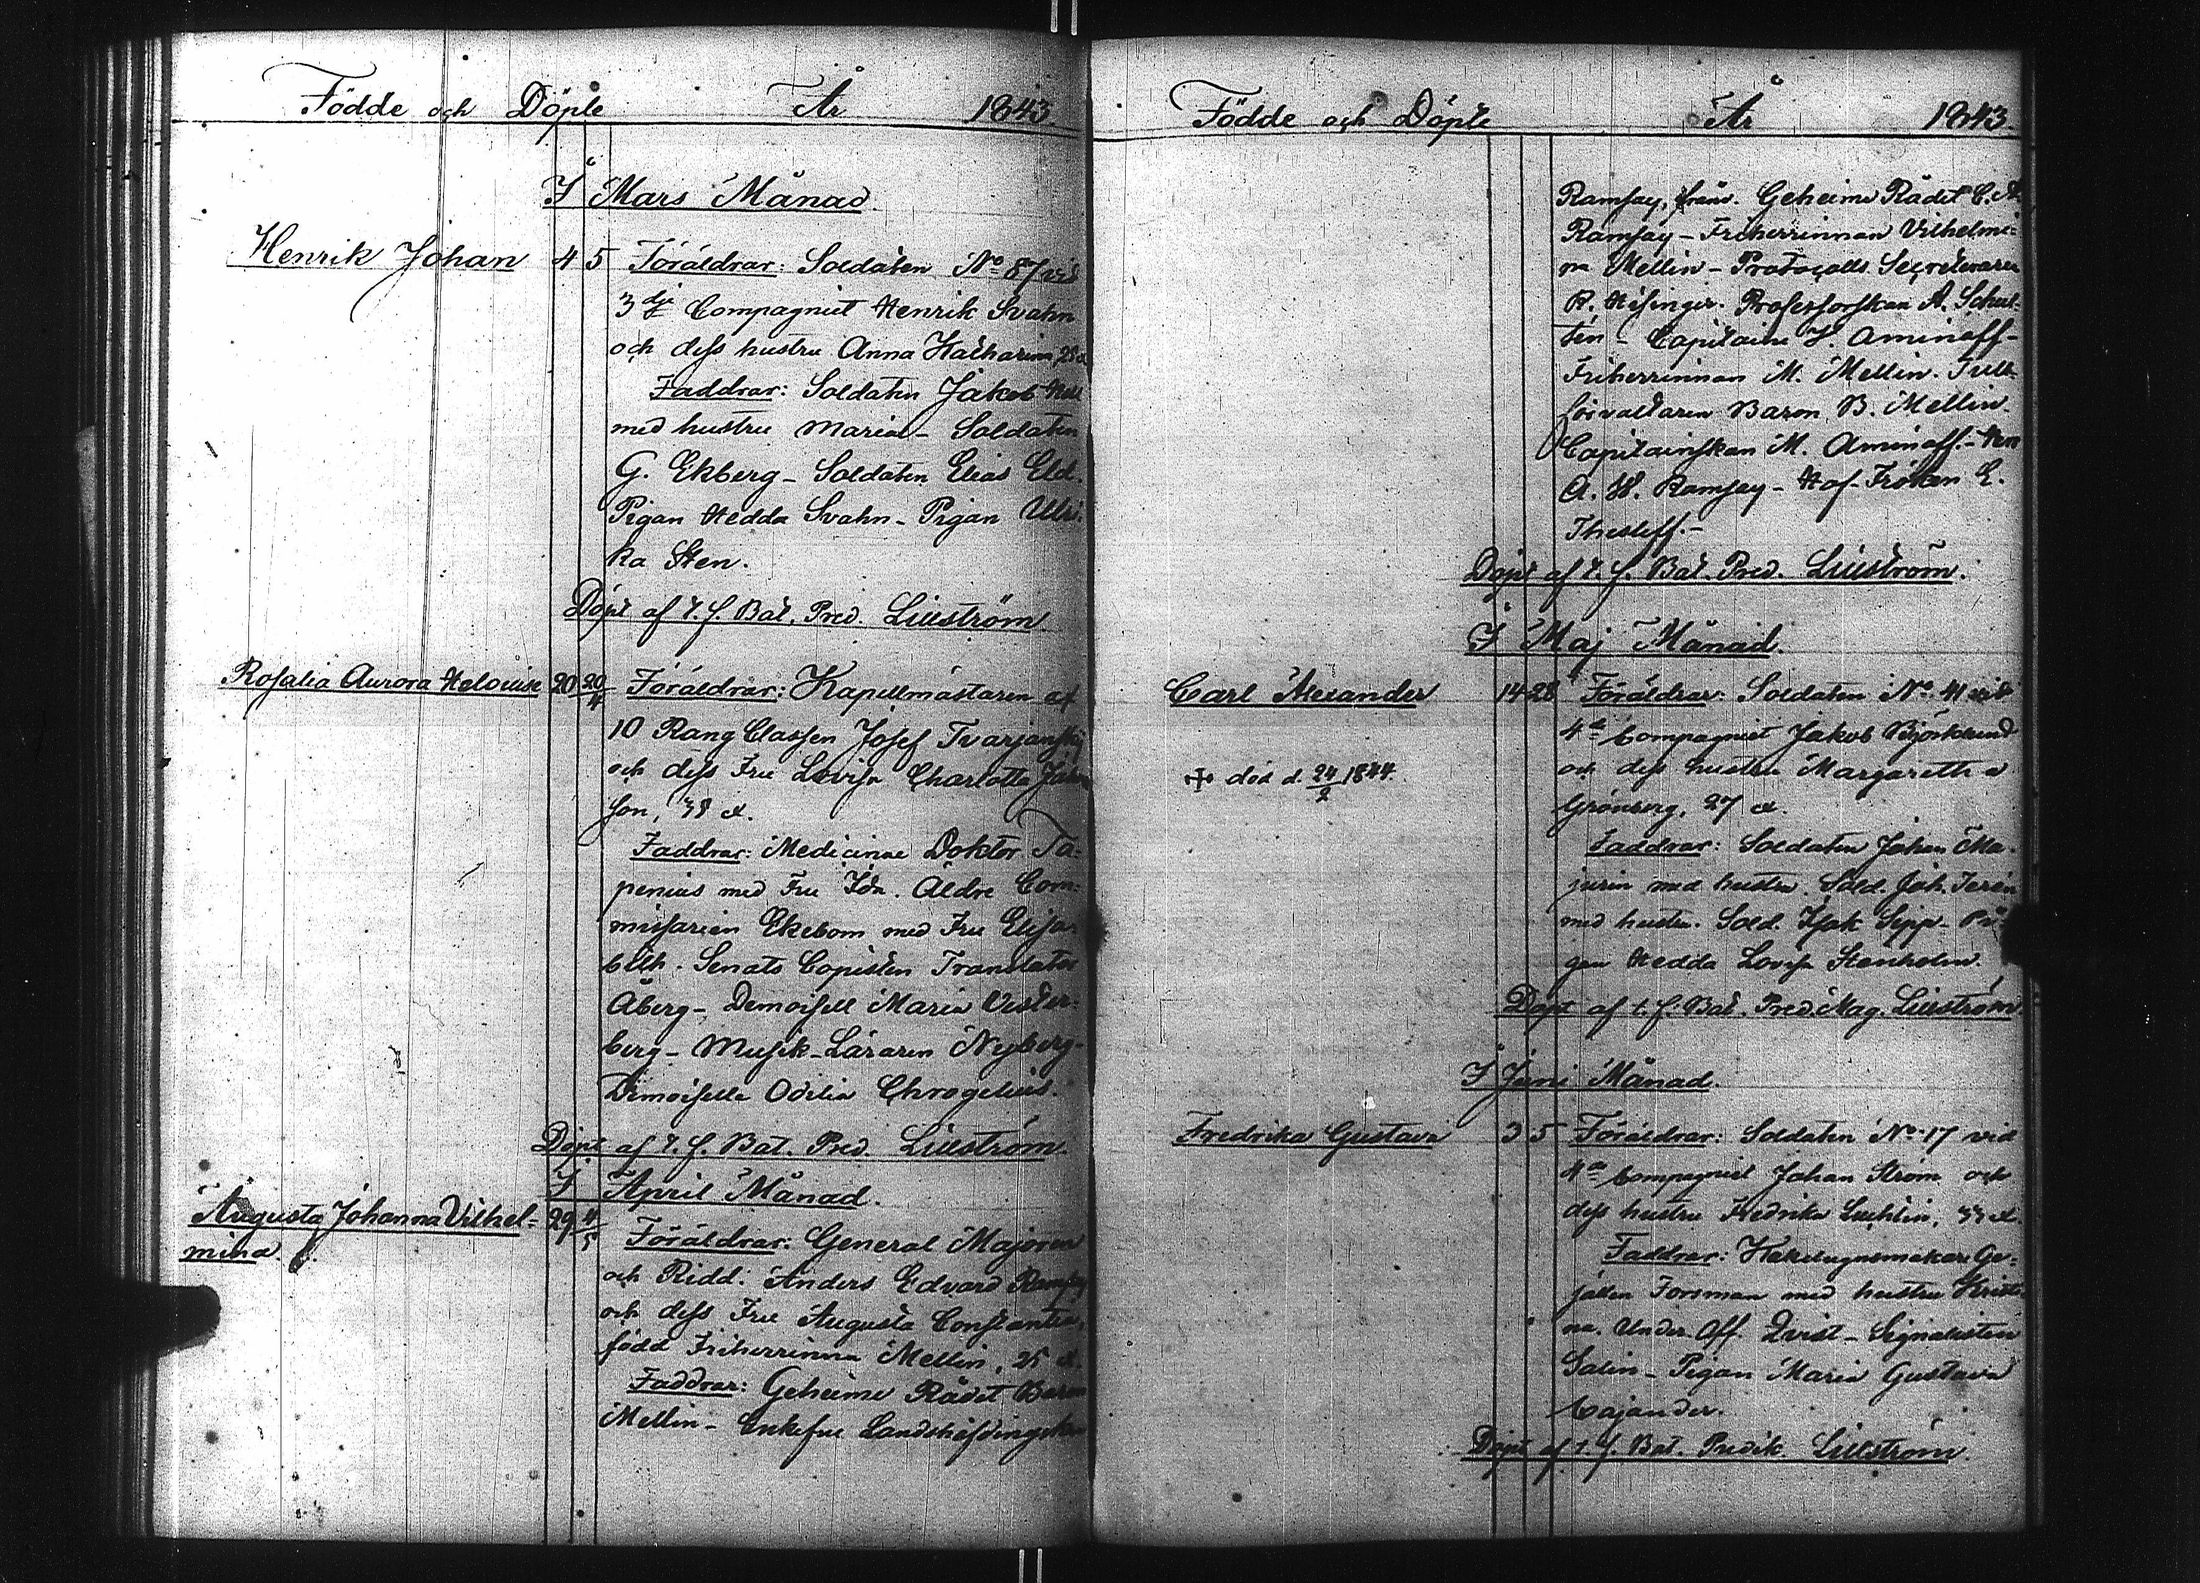 Födde och Döpte År 1843.
I Mars Månad.
Henrik Johan 4 5 Föräldrar: Soldaten No 87 vid
3dje Compagniet Henrik Svahn
och dess hustru Anna Katharina, 25
Faddrar: Soldaten Jakob
med hustru Maria - Soldaten
G. Ekberg - Soldaten Elias Eld.
Pigan Hedda Svahn - Pigan Ulri:
ka Sten.
Döpt af t. f. Bat. Pred. Lillström.
Rosalia Aurora Helouise 20 20/4 Föräldrar: Kapellmästaren af
10 Rang Classen Josef Tvarjansky
och dess Fru Lovisa Charlotta
son, 38 et.
Faddrar: Medicinae Doktor Ta:
penius med Fru Ida. Äldre Com:
missarien Ekebom med Fru Elisa-
beth. Senats Copisten Translator
Åberg - Demoisell Maria Vester:
berg - Musik-Läraren Nyberg -
Demoiselle Odilia Chrogelius.
Döpt af t. f. Bat. Pred. Lillström.
I April Månad.
Augusta Johanna Vilhel= 29 4/5 Föräldrar: General Majoren
mina.
och Ridd: Anders Edvard Ramsay
och dess Fru Augusta Constantia,
född Friherrinna Mellin, 25 et.
Faddrar: Geheime Rådet Baron
Mellin - Enkefru Landshöfdingskan
Födde och Döpte År 1843.
Ramsay, Geheime Rådet C. A.
Ramsay - Friherrinnan Vilhelmi=
na Mellin - Protocolls Secreteraren
R. Hisinger. Professorskan A. Schul-
tén - Capitaine J. Aminoff -
Friherrinnan M. Mellin. Tull-
förvaltaren Baron B. Mellin.
Capitainskan M. Aminoff - Herr
A. W. Ramsay - Hof Fröken E.
Thesleff. -
Döpt af t. f. Bat. Pred. Lillström.
I Maj Månad.
Carl Alexander 14 28 Föräldrar: Soldaten No 41 vid
4de Compagniet Jakob Björklund
† död d. 24/2 1844.
och dess hustru Margaretha
Grönberg, 27 et.
Faddrar: Soldaten Johan Ma-
jurin med hustru. Sold. Joh. Terén
med hustru. Sold. Isak Sipp - Pi=
gan Hedda Lovisa Stenholm.
Döpt af t. f. Bat. Pred. Mag. Lillström
I Juni Månad.
Fredrika Gustava 3 5 Föräldrar: Soldaten No 17 vid
4de Compagniet Johan Ström och
dess hustru Fredrika 33 et.
Faddrar: Kakelugnsmakare Ge-
sällen Forsman med hustru Kristi-
na. Under Off. Qvist - Signalisten
Salin - Pigan Maria Gustava
Cajander.
Döpt af t. f. Bat. Predik. Lillström.